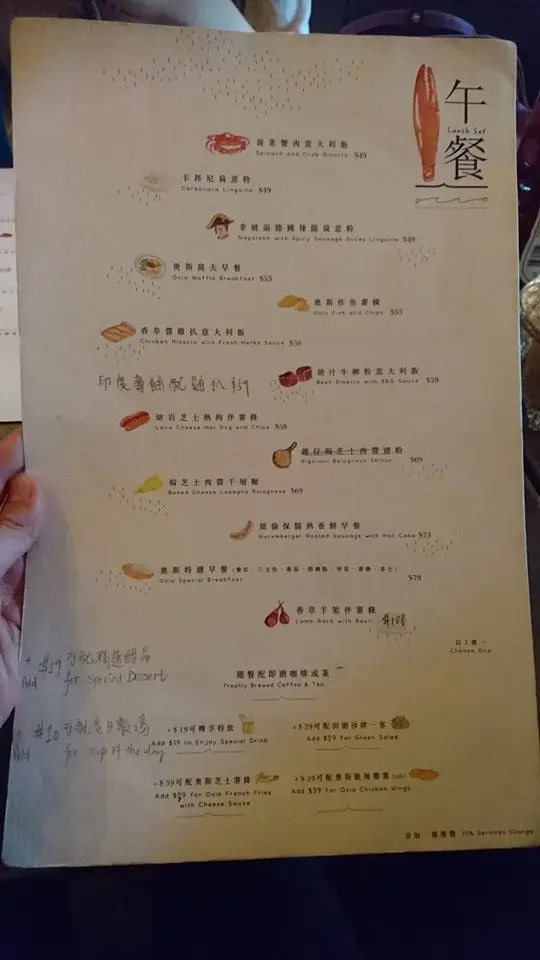 午餐
Lunch Set
ocio
菠菜蟹肉意大利飯
Spinach and Crab Risotto $49
卡邦尼扁意粉
Carbonara Linguine $49
拿破崙德國辣腸扁意粉
Napoleon with Spicy Sausage Slices Linguine $49
奧斯窩夫早餐
Ocio Waffle Breakfast $53
奧斯炸魚薯條
Ocio Fish and Chips $53
香草醬雞扒意大利飯
Chicken Risotto with Fresh Herbs Sauce $59
燒汁牛柳粒意大利飯
Beef Risotto with BBQ Sauce $59
印度薯條配雞扒
熔岩芝士熱狗伴薯條
Lava Cheese Hot Dog and Chips $59
鑊仔焗芝士肉醬通粉
Rigatoni Bolognese Skillet $69
焗芝士肉醬千層麵
Baked Cheese Lasagna Bolognese $69
紐倫保腸熱香餅早餐
Nuremberger Roasted Sausage with Hot Cake $73
奧斯特選早餐
Ocio Special Breakfast $79
香草羊架伴薯條
Lamb Rack with Basil $108
以上選一
Choose One
隨餐配即磨咖啡或茶
Freshly Brewed Coffee & Tea
+ $19 可配精選甜品
Add for Special Dessert
+ $10 可配是日餐湯
Add for Soup of the day
+$19可轉享特飲
Add $19 to Enjoy Special Drink
+$29可配田園沙律一客
Add $29 for Green Salad
+$39可配奧斯芝士薯條
Add $29 for Ocio French Fries
with Cheese Sauce
+$39可配奧斯脆辣雞翼
Add $39 for Ocio Chicken Wings
另加一服務費 10% Services Charge